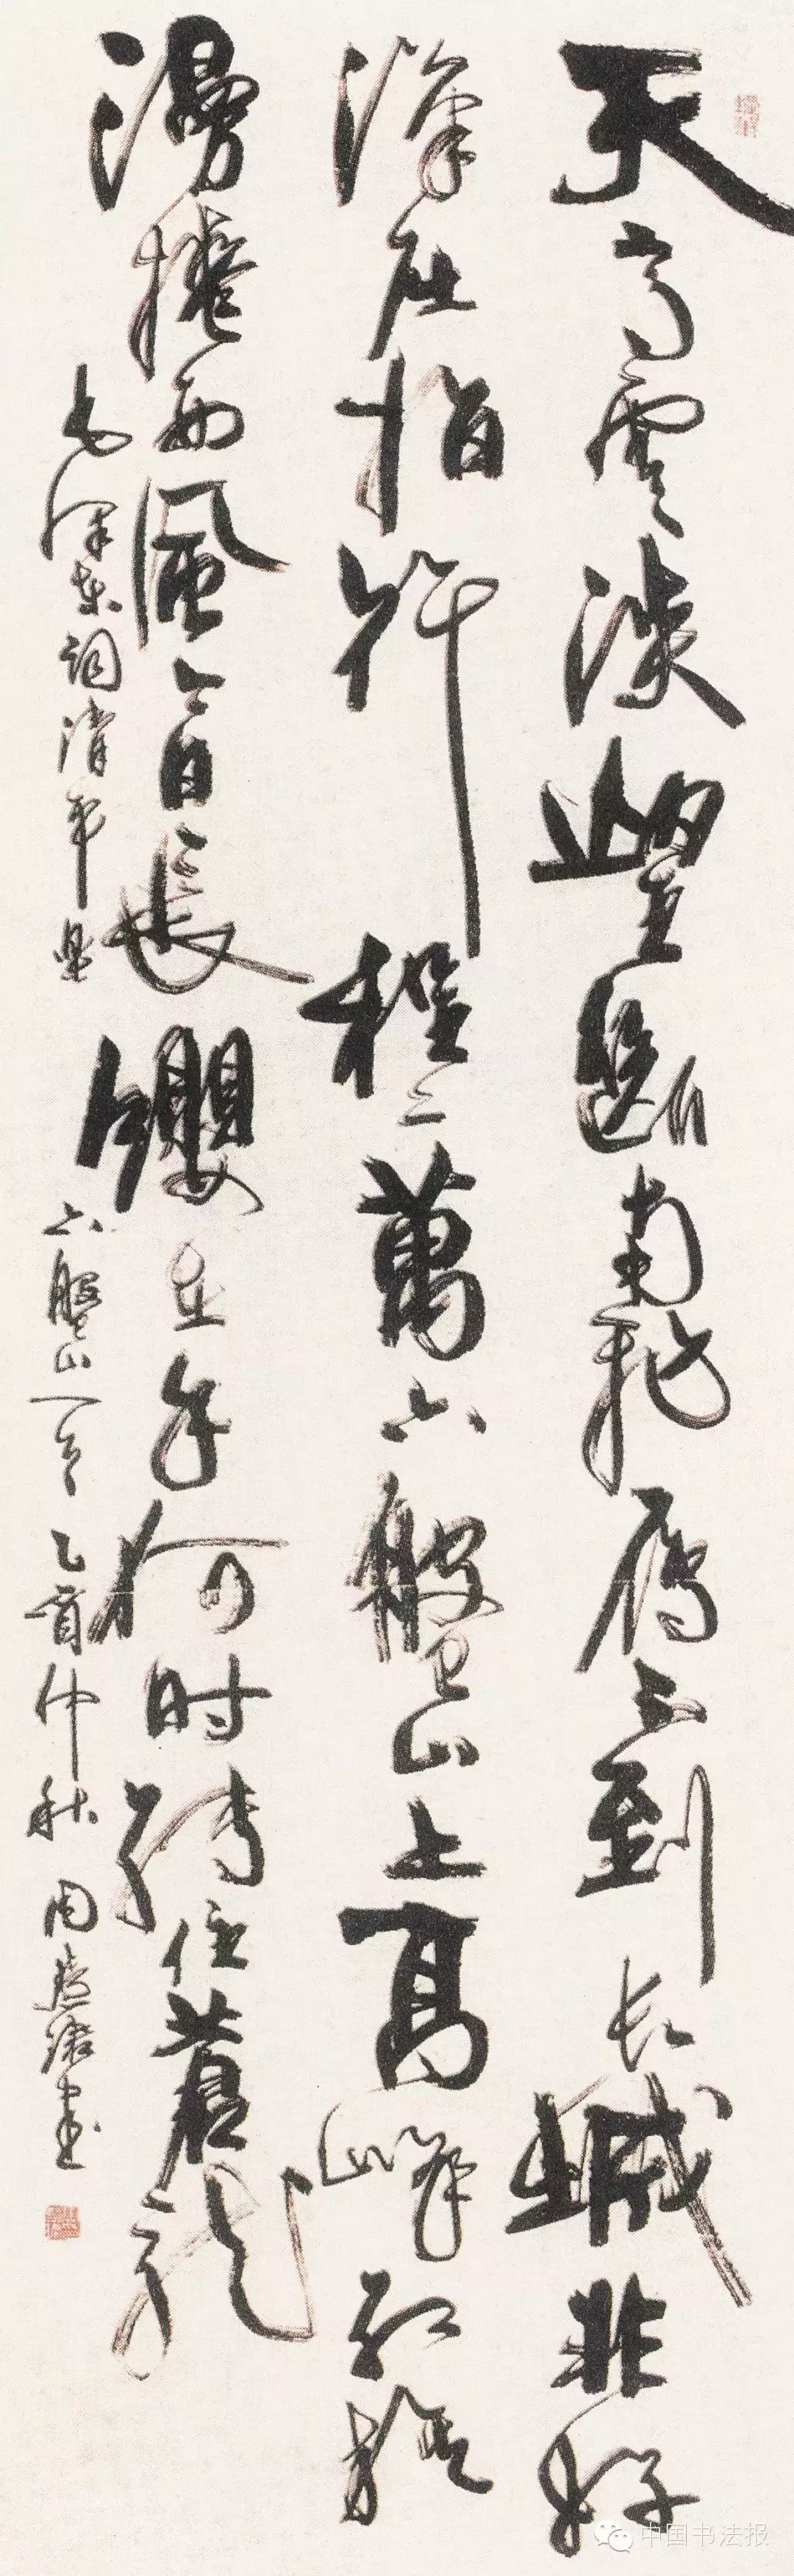 天高雲淡望斷南飛雁不到长城非好
漢屈指行程二萬六盤山上高峰红旗
漫捲西風今日長纓在手何时缚住蒼龍
毛泽东词清平乐 六盤山一首 乙酉仲秋 周慧珺书
中国书法报